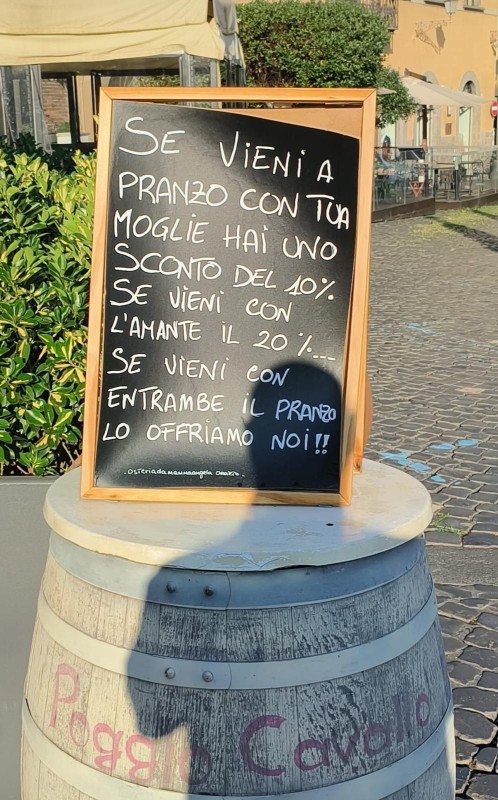 SE VIENI A
PRANZO CON TUA
MOGLIE HAI UNO
SCONTO DEL 10%
SE VIENI CON
L'AMANTE IL 20%...
SE VIENI CON
ENTRAMBE IL PRANZO
LO OFFRIAMO NOI!!
Poggio Cavallo